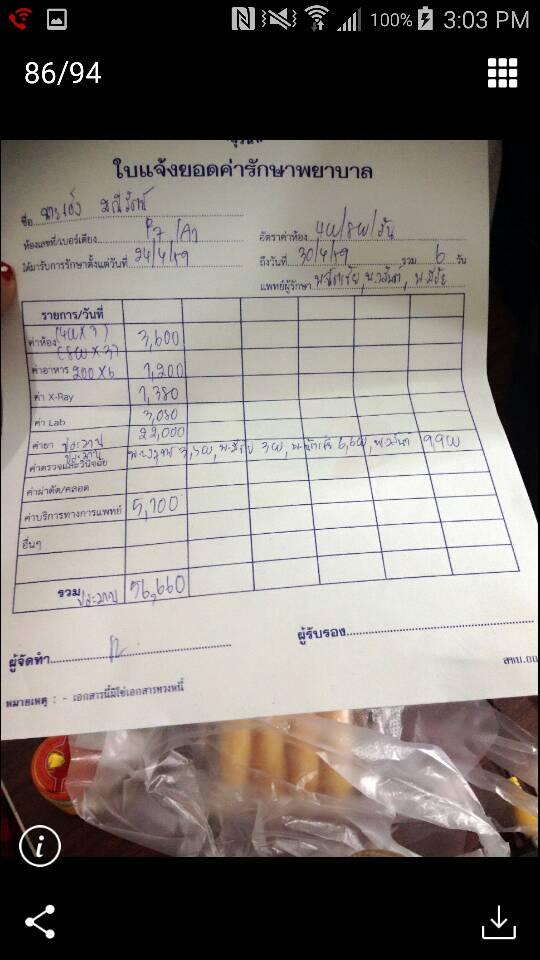 100% 3:03 PM
86/94
ใบแจ้งยอดค่ารักษาพยาบาล
ชื่อ
ห้องเลขที่/เบอร์เตียง P7 /A1 อัตราค่าห้อง 400/800/วัน
ได้มารับการรักษาตั้งแต่วันที่ 24/4/59 ถึงวันที่ 30/4/59 รวม 6 วัน
แพทย์ผู้รักษา
รายการ/วันที่
ค่าห้อง (400 X 3) 3,600
(800 X 3)
ค่าอาหาร 200 X 6 1,200
ค่า X-Ray 1,380
ค่า Lab 3,080
ค่ายา ประมาณ 22,000
ค่าตรวจและวินิจฉัย ประมาณ
ค่าผ่าตัด/คลอด
ค่าบริการทางการแพทย์ 5,100
อื่นๆ
รวม ประมาณ 56,660
ผู้จัดทำ ผู้รับรอง
หมายเหตุ : - เอกสารนี้มิใช่เอกสารทวงหนี้